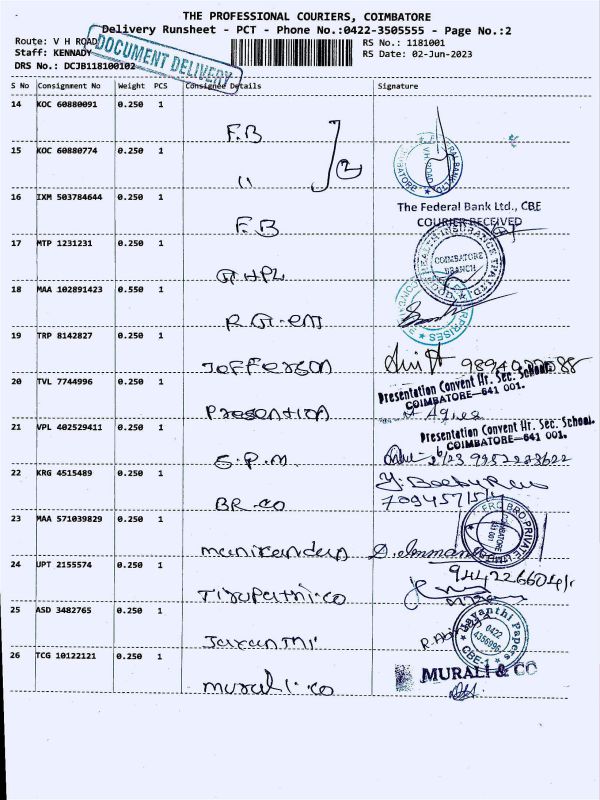 THE PROFESSIONAL COURIERS, COIMBATORE
Delivery Runsheet - PCT - Phone No.:0422-3505555 - Page No.:2
Route: V H ROAD
RS No.: 1181001
Staff: KENNADY
RS Date: 02-Jun-2023
DRS No.: DCJB118100102
DOCUMENT DELIVERY
S No Consignment No Weight PCS Consignee Details Signature
14 KOC 60880091 0.250 1
F.B
15 KOC 60880774 0.250 1
11
2
V.H. ROAD
16 IXM 503784644 0.250 1
F.B
The Federal Bank Ltd., CBE
COURIER RECEIVED
17 MTP 1231231 0.250 1
G.HPL
HEALTH INSURANCE TPA LTD
COIMBATORE
BRANCH
18 MAA 102891423 0.550 1
R.G.ent
19 TRP 8142827 0.250 1
Jefferson
20 TVL 7744996 0.250 1
Presention
Presentation Convent Hr. Sec. School.
COIMBATORE-641 001.
21 VPL 402529411 0.250 1
S.P.M
Presentation Convent Hr. Sec. School.
COIMBATORE-641 001.
22 KRG 4515489 0.250 1
BR.CO
23 MAA 571039829 0.250 1
manikandan
PRO BRO PRIVATE LIMITED
24 UPT 2155574 0.250 1
Tirupathi.co
25 ASD 3482765 0.250 1
Jayanthi
Jayanthi Papers
0422
4356996
CBE-1
26 TCG 10122121 0.250 1
murali.co
MURALI & CO